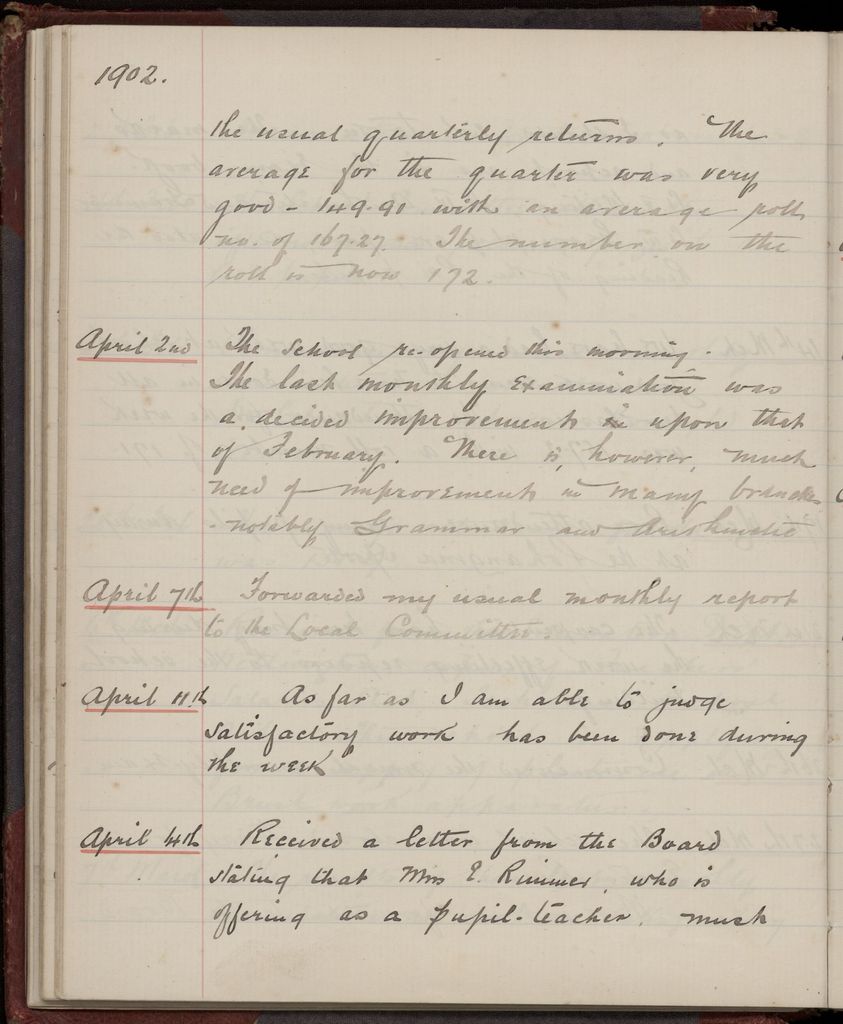 1902.
the usual quarterly returns. The
average for the quarter was very
good - 149.91 with an average roll
no. of 167.27. The number on the
roll is now 172.
April 2nd The School re-opened this morning.
The last monthly Examination was
a decided improvement upon that
of February. There is, however, much
need of improvement in many branches
- notably Grammar and Arithmetic
April 7th Forwarded my usual monthly report
to the Local Committee.
April 11th As far as I am able to judge
satisfactory work has been done during
the week
April 14th Received a letter from the Board
stating that Miss E. Rimmer, who is
offering as a pupil-teacher, must